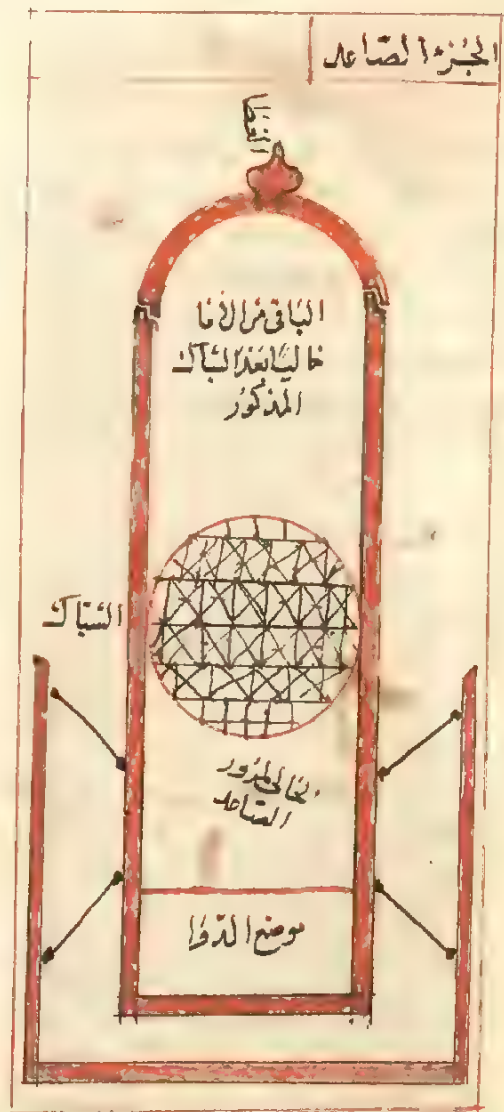 الجزء الصاعد
الباقى من الانا
خاليا بعد الشباك
المذكور
الشباك
الخالى لمرور
الصاعد
موضع الدوا